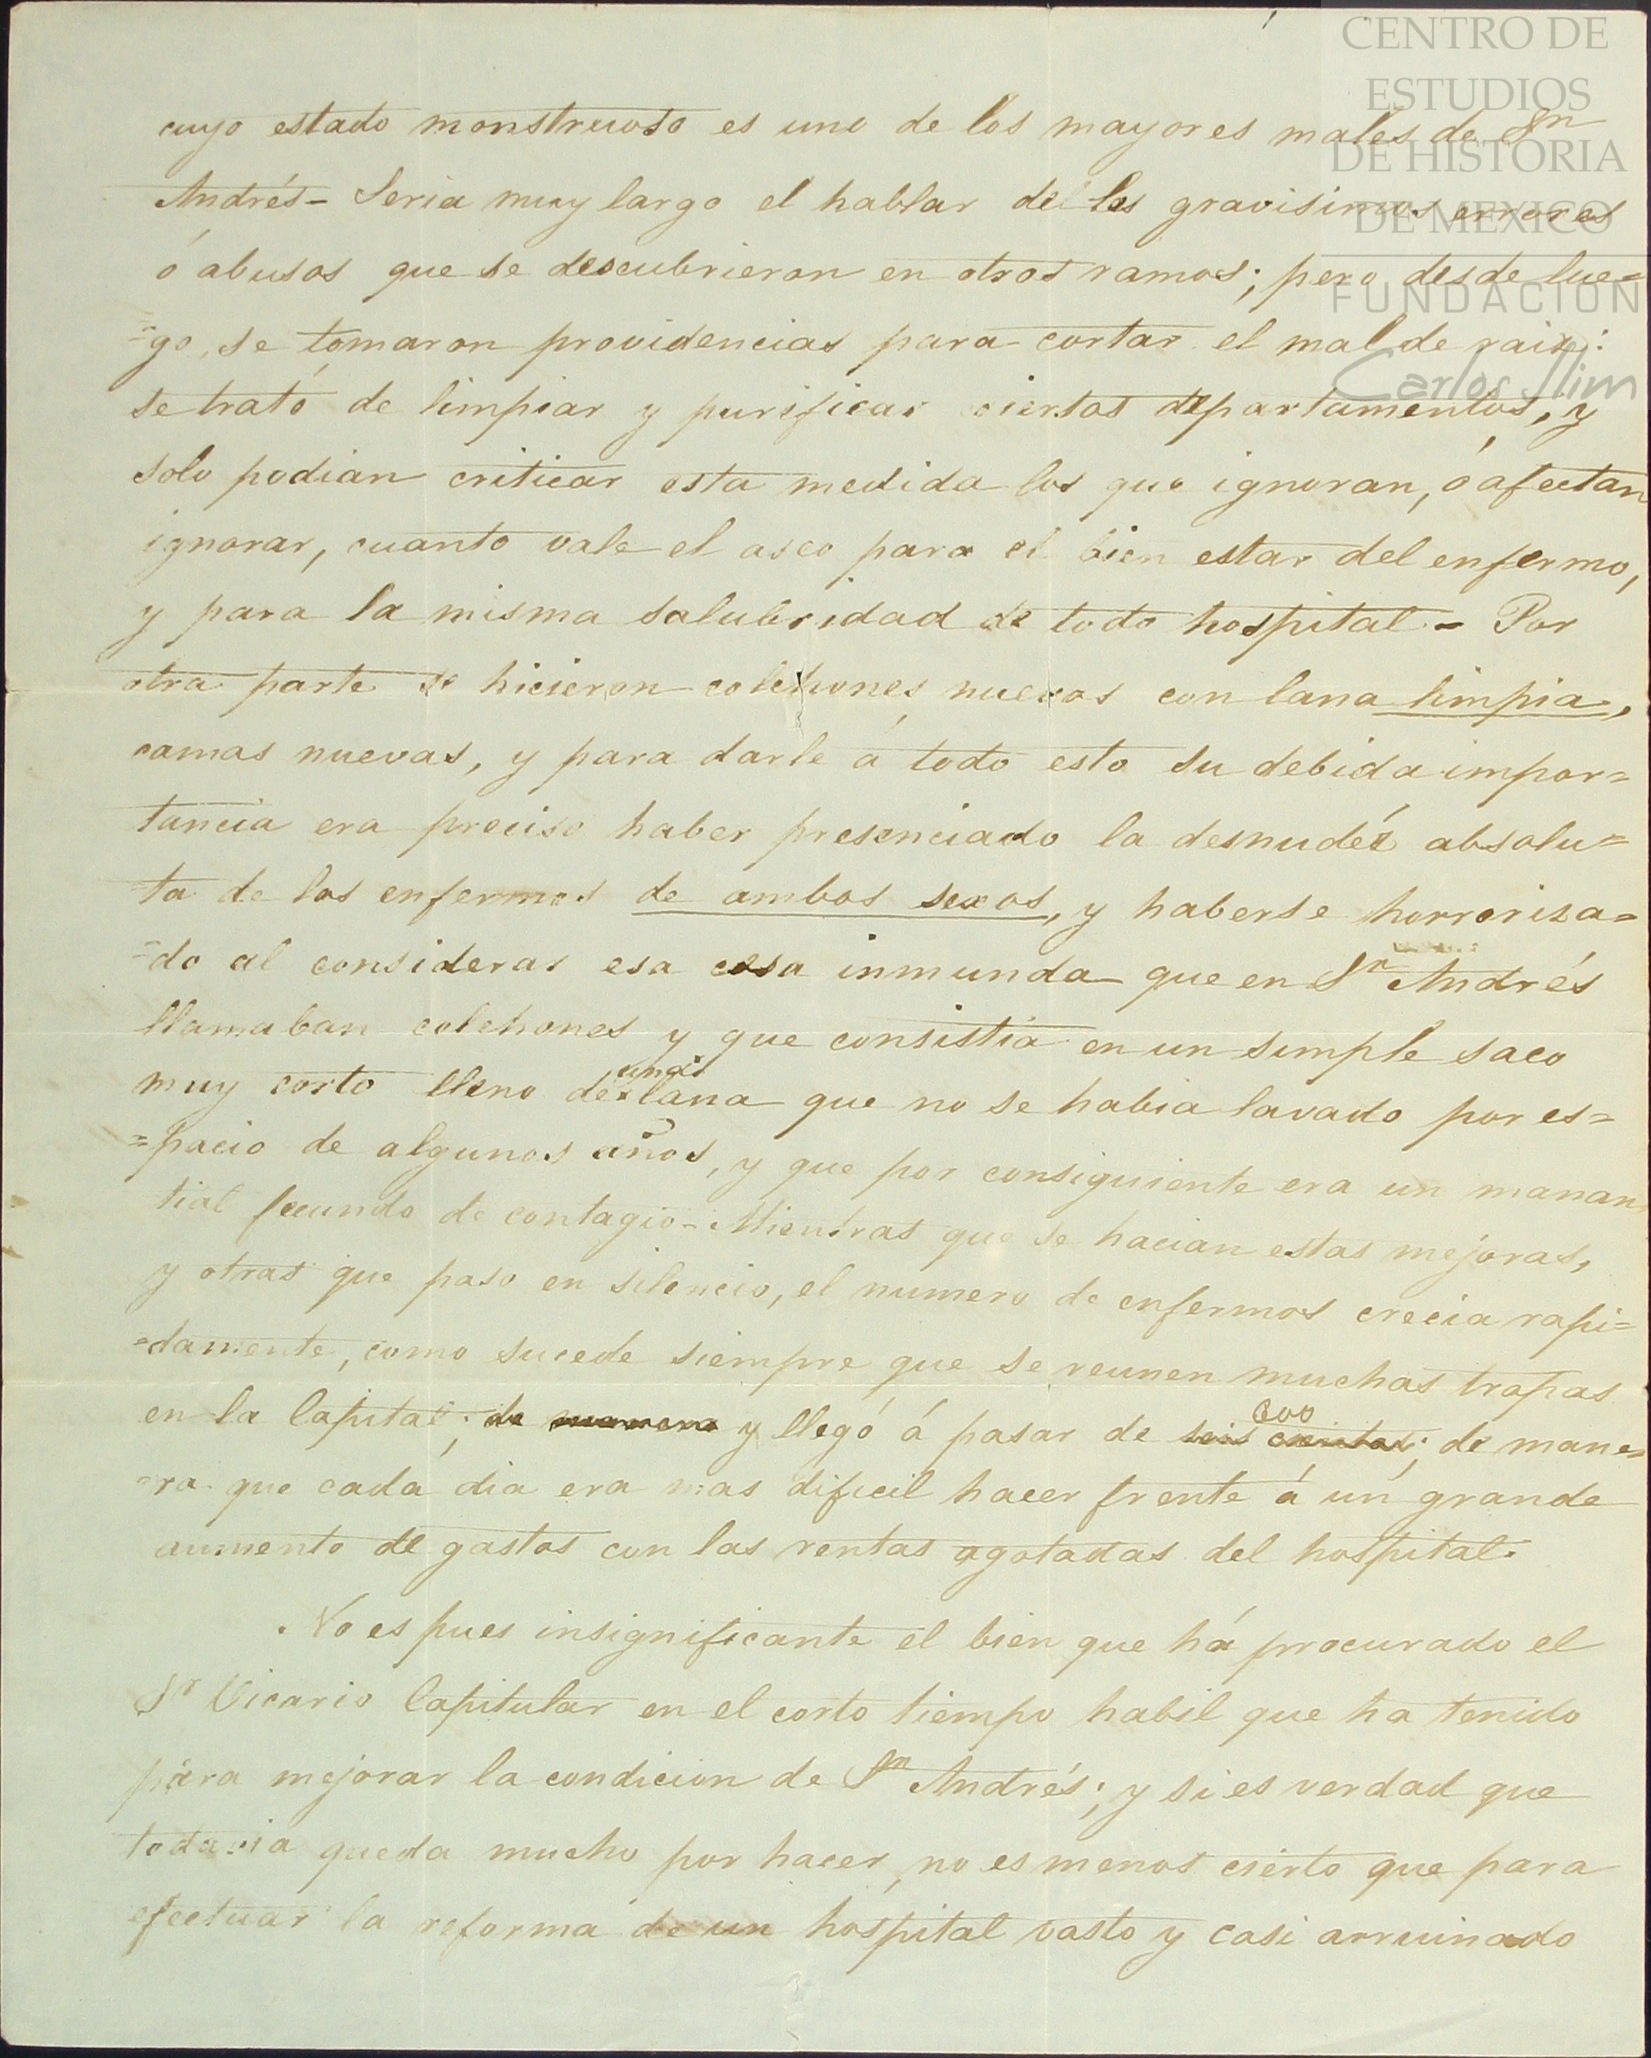 CENTRO DE
ESTUDIOS
DE HISTORIA
DE MEXICO
FUNDACION
Carlos Slim
cuyo estado monstruoso es uno de los mayores males de Sn
Andrés - Seria muy largo el hablar de los gravisimos errores
ó abusos que se descubrieron en otros ramos; pero desde lue=
=go, se tomaron providencias para cortar el mal de raiz:
se trató de limpiar y purificar ciertos departamentos, y
solo podian criticar esta medida los que ignoran, ó afectan
ignorar, cuanto vale el aseo para el bien estar del enfermo,
y para la misma salubridad de todo hospital - Por
otra parte se hicieron colchones nuevos con lana limpia,
camas nuevas, y para darle á todo esto su debida impor=
tancia era preciso haber presenciado la desnudéz absolu=
ta de los enfermos de ambos sexos, y haberse horroriza=
=do al considerar esa cosa inmunda que en Sn Andrés
llamaban colchones y que consistia en un simple saco
muy corto lleno de una lana que no se habia lavado por es=
=pacio de algunos años, y que por consiguiente era un manan
tial fecundo de contagio - Mientras que se hacian estas mejoras,
y otras que paso en silencio, el numero de enfermos crecia rapi=
=damente, como sucede siempre que se reunen muchas tropas
en la Capital; de manera y llegó á pasar de seis cientos 600; de mane=
=ra que cada dia era mas dificil hacer frente á un grande
aumento de gastos con las rentas agotadas del hospital.
No es pues insignificante el bien que há procurado el
Sr Vicario Capitular en el corto tiempo habil que ha tenido
para mejorar la condicion de Sn Andrés; y si es verdad que
todavia queda mucho por hacer, no es menos cierto que para
efectuar la reforma de un hospital vasto y casi arruinado